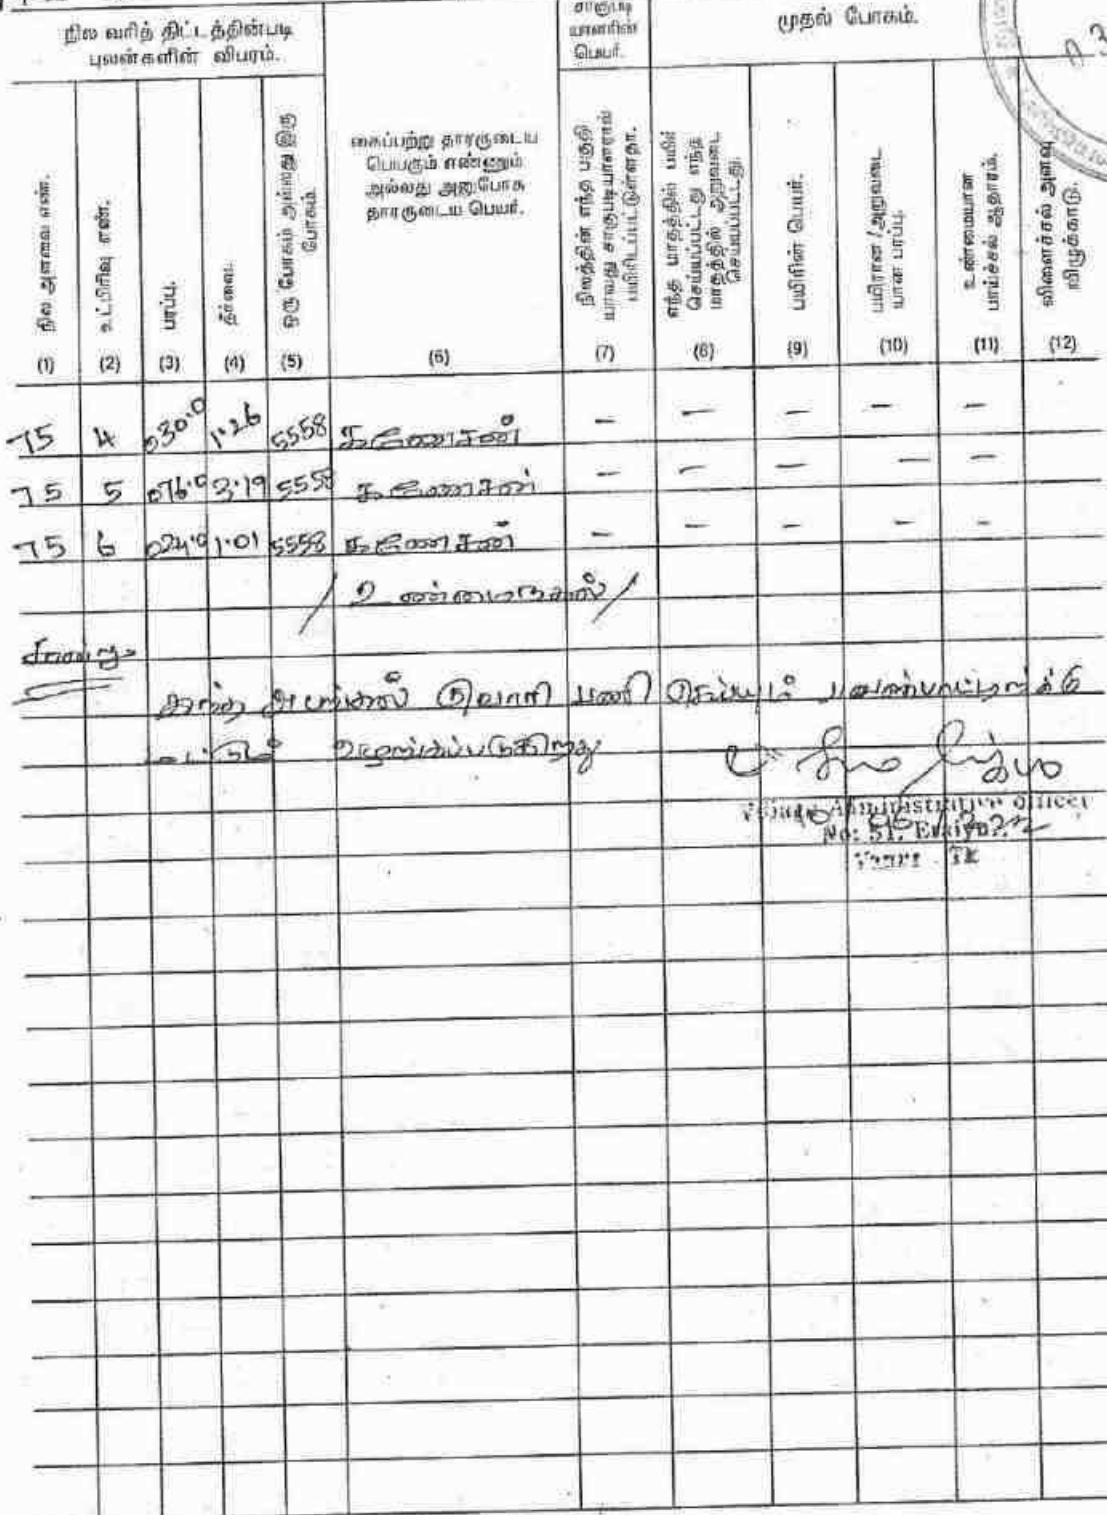 நில வரித் திட்டத்தின்படி
புலன்களின் விபரம்.
சாகுபடி
யாளரின்
பெயர்.
முதல் போகம்.
நில அளவை எண்.
உட்பிரிவு எண்.
பரப்பு.
தீர்வை.
ஒரு போகம் அல்லது இரு
போகம்.
கைப்பற்று தாரருடைய
பெயரும் எண்ணும்
அல்லது அனுபோக
தாரருடைய பெயர்.
நிலத்தின் எந்த பகுதி
யாவது சாகுபடியாளரால்
பயிரிடப்பட்டுள்ளதா.
எந்த மாதத்தில் பயிர்
செய்யப்பட்டது எந்த
மாதத்தில் அறுவடை
செய்யப்பட்டது.
பயிரின் பெயர்.
பயிரான /அறுவடை
யான பரப்பு.
உண்மையான
பாய்ச்சல் ஆதாரம்.
விளைச்சல் அளவு
விழுக்காடு.
(1) (2) (3) (4) (5) (6) (7) (8) (9) (10) (11) (12)
75 4 030.0 1.26 5558 கணேசன் – – – – –
75 5 076.0 3.19 5558 கணேசன் – – – – –
75 6 024.0 1.01 5558 கணேசன் – – – – –
/ உண்மைநகல் /
சான்று
இந்த அடங்கல் குவாரி பணி செய்யும் பயன்பாட்டிற்க்கு
மட்டும் வழங்கப்படுகிறது
Village Administrative Officer
No: 51,
Tk